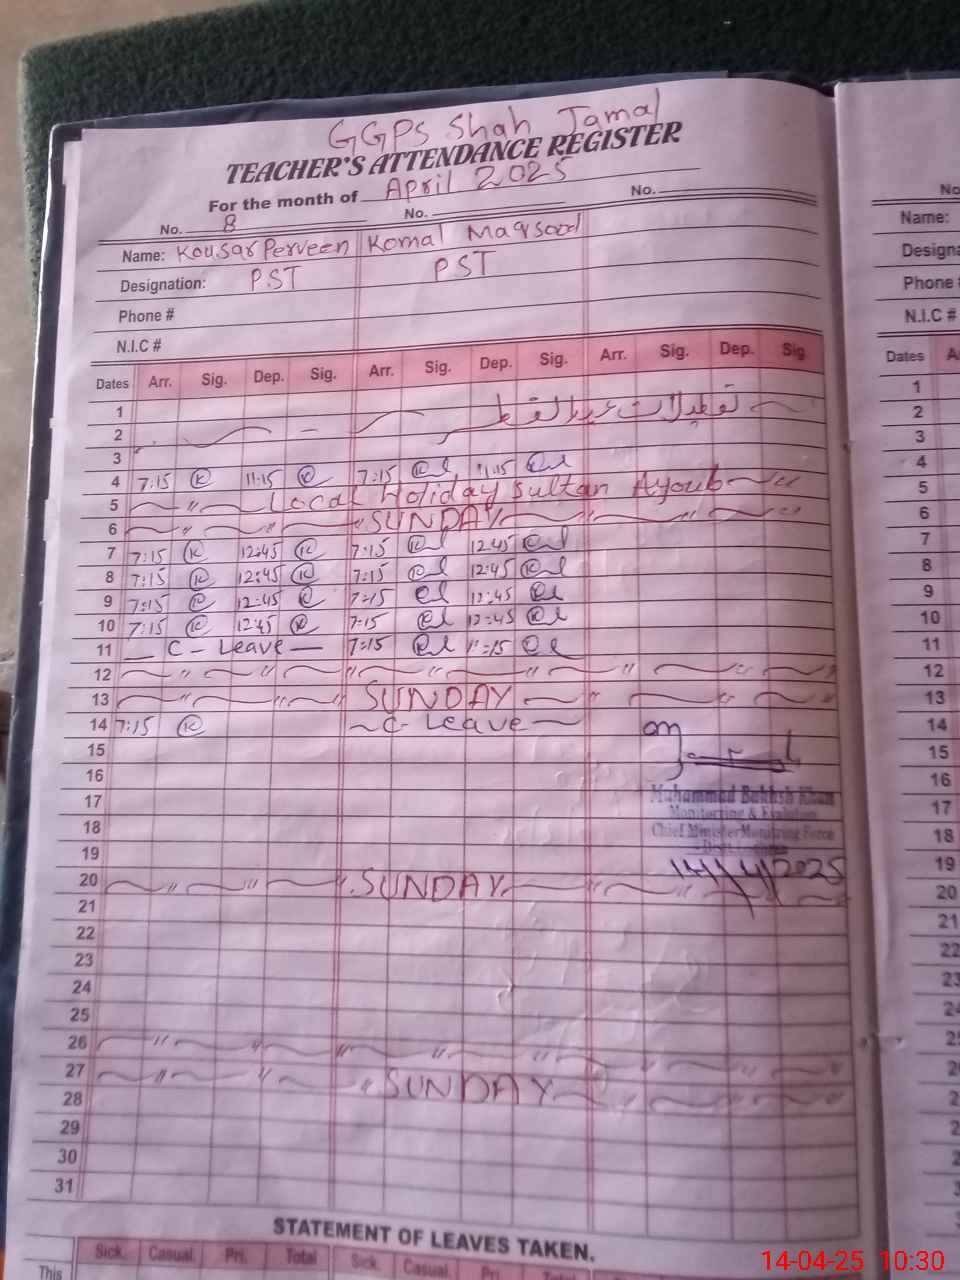 GGPS Shah Jamal
TEACHER'S ATTENDANCE REGISTER
For the month of April 2025
No. 8 No. No.
Name: Kousar Perveen Komal Maqsood
Designation: P.ST PST
Phone #
N.I.C #
Dates Arr. Sig. Dep. Sig. Arr. Sig. Dep. Sig. Arr. Sig. Dep. Sig
1 تعطیلات عید الفطر
2
3
4 7:15 11:15 7:15 11:15
5 Local Holiday Sultan Ayoub
6 SUNDAY
7 7:15 12:45 7:15 12:45
8 7:15 12:45 7:15 12:45
9 7:15 12:45 7:15 12:45
10 7:15 12:45 7:15 12:45
11 C - Leave 7:15 11:15
12
13 SUNDAY
14 7:15 C - Leave
15
16
17 Muhammad Bakhsh Khan
Monitoring & Evalution
18 Chief Minister Monitring Force
19
14/4/2025
20 SUNDAY
21
22
23
24
25
26
27 SUNDAY
28
29
30
31
STATEMENT OF LEAVES TAKEN.
Sick. Casual. Pri. Total Sick. Casual. Pri. Total
This
No
Name:
Designa
Phone
N.I.C #
Dates A
1
2
3
4
5
6
7
8
9
10
11
12
13
14
15
16
17
18
19
20
21
22
23
24
14-04-25 10:30